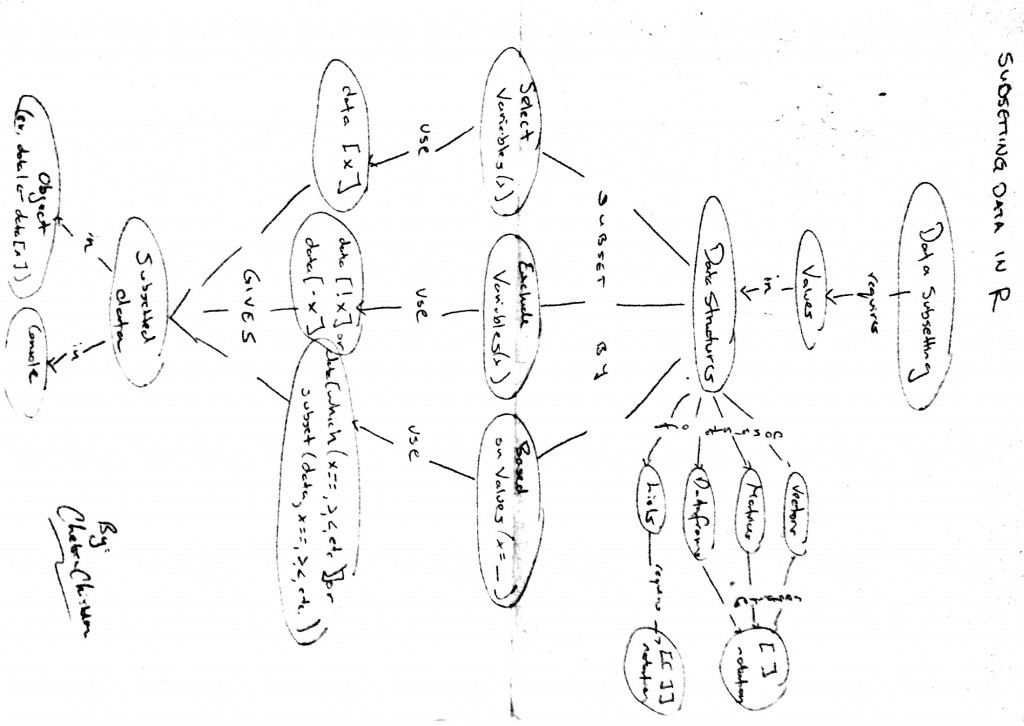 SUBSETTING DATA IN R
Data Subsetting
requires
Values
in
Data Structures
consist of
Vectors
Matrices
Dataframe
Lists
requires
requires
[ ]
notation
[[ ]]
notation
SUBSET BY
Select
Variables(x)
Exclude
Variables(x)
Based
on Values (x=__)
use
use
use
data [x]
data [!x] or
data[-x]
data[which(x==,>,<,etc )]or
subset(data, x==,>,<,etc. ))
GIVES
Subsetted
data
in
in
Object
(ex. data1<-data[x])
Console
By: